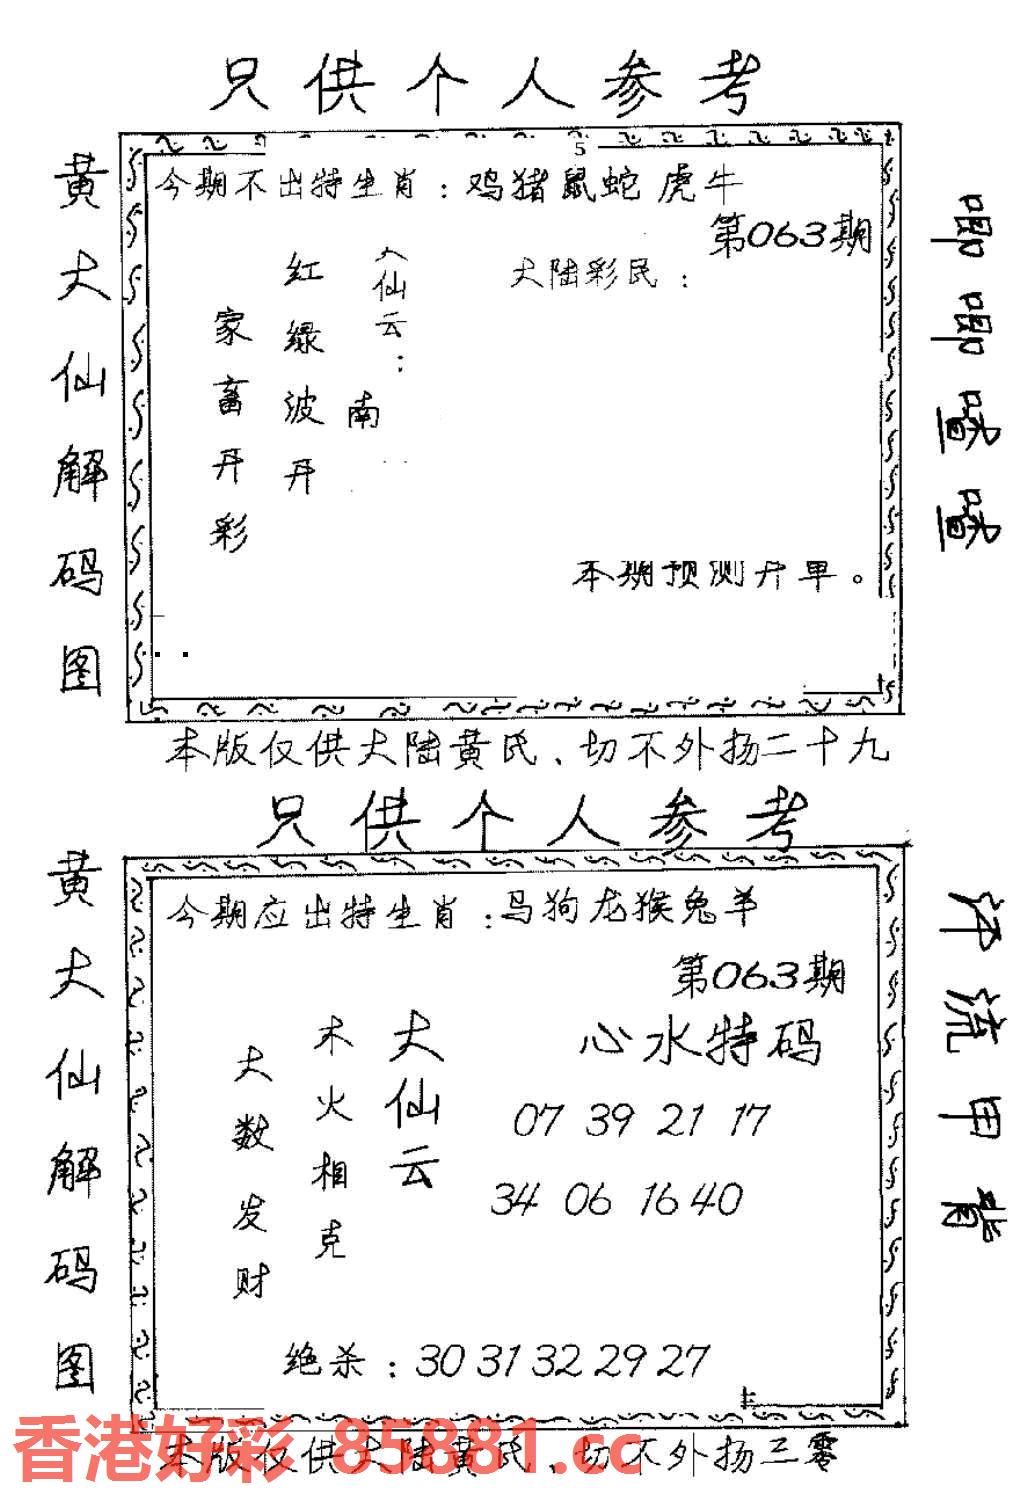 只供个人参考
黄大仙解码图
5
今期不出特生肖：鸡猪鼠蛇虎牛
第063期
大陆彩民：
大仙云：
南
红绿波开
家畜开彩
本期预测开单。
唧唧喳喳
本版仅供大陆黄氏、切不外扬二十九
只供个人参考
黄大仙解码图
今期应出特生肖：马狗龙猴兔羊
第063期
心水特码
07 39 21 17
34 06 16 40
大仙云
木火相克
大数发财
绝杀：30 31 32 29 27
汗流甲背
本版仅供大陆黄氏、切不外扬三零
香港好彩 85881.cc